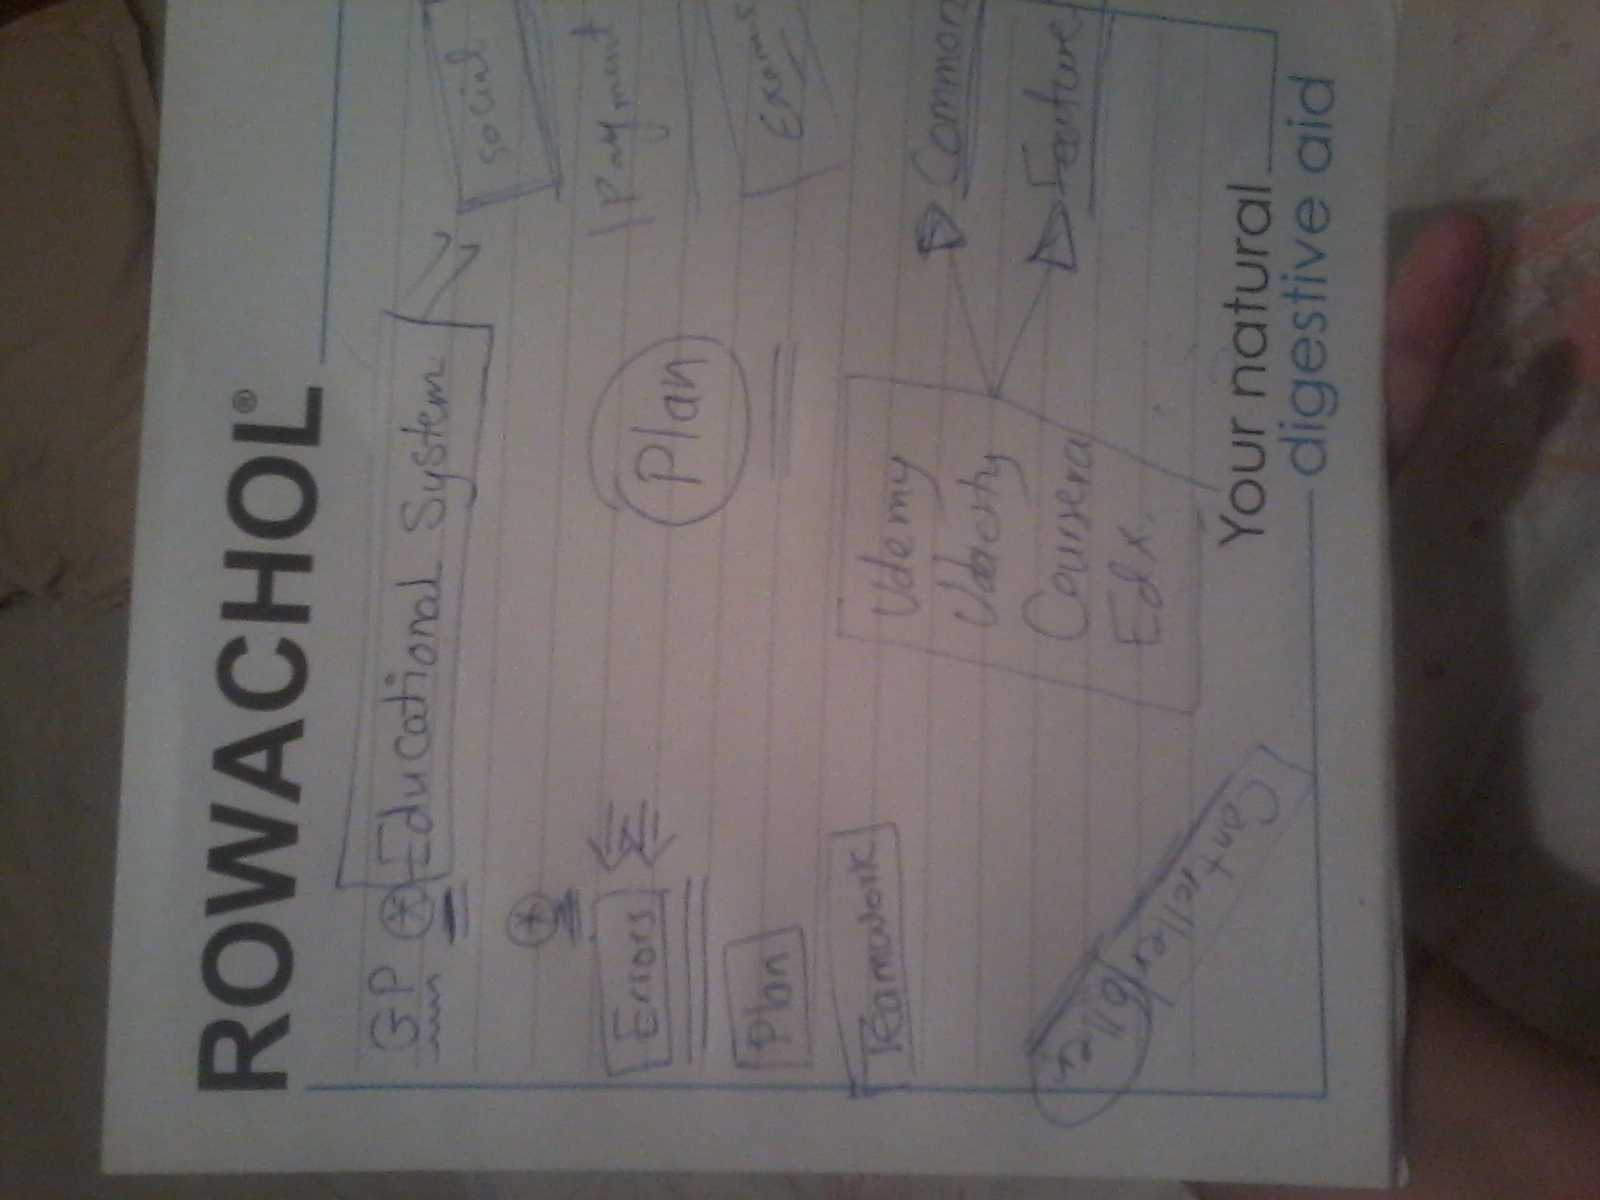 ROWACHOL®
GP * Educational System
social
*
Errors
Payment
Plan
Plan
Exams
Teamwork
Udemy
Udacity
Coursera
Edx.
Common
Feature
Your natural
digestive aid